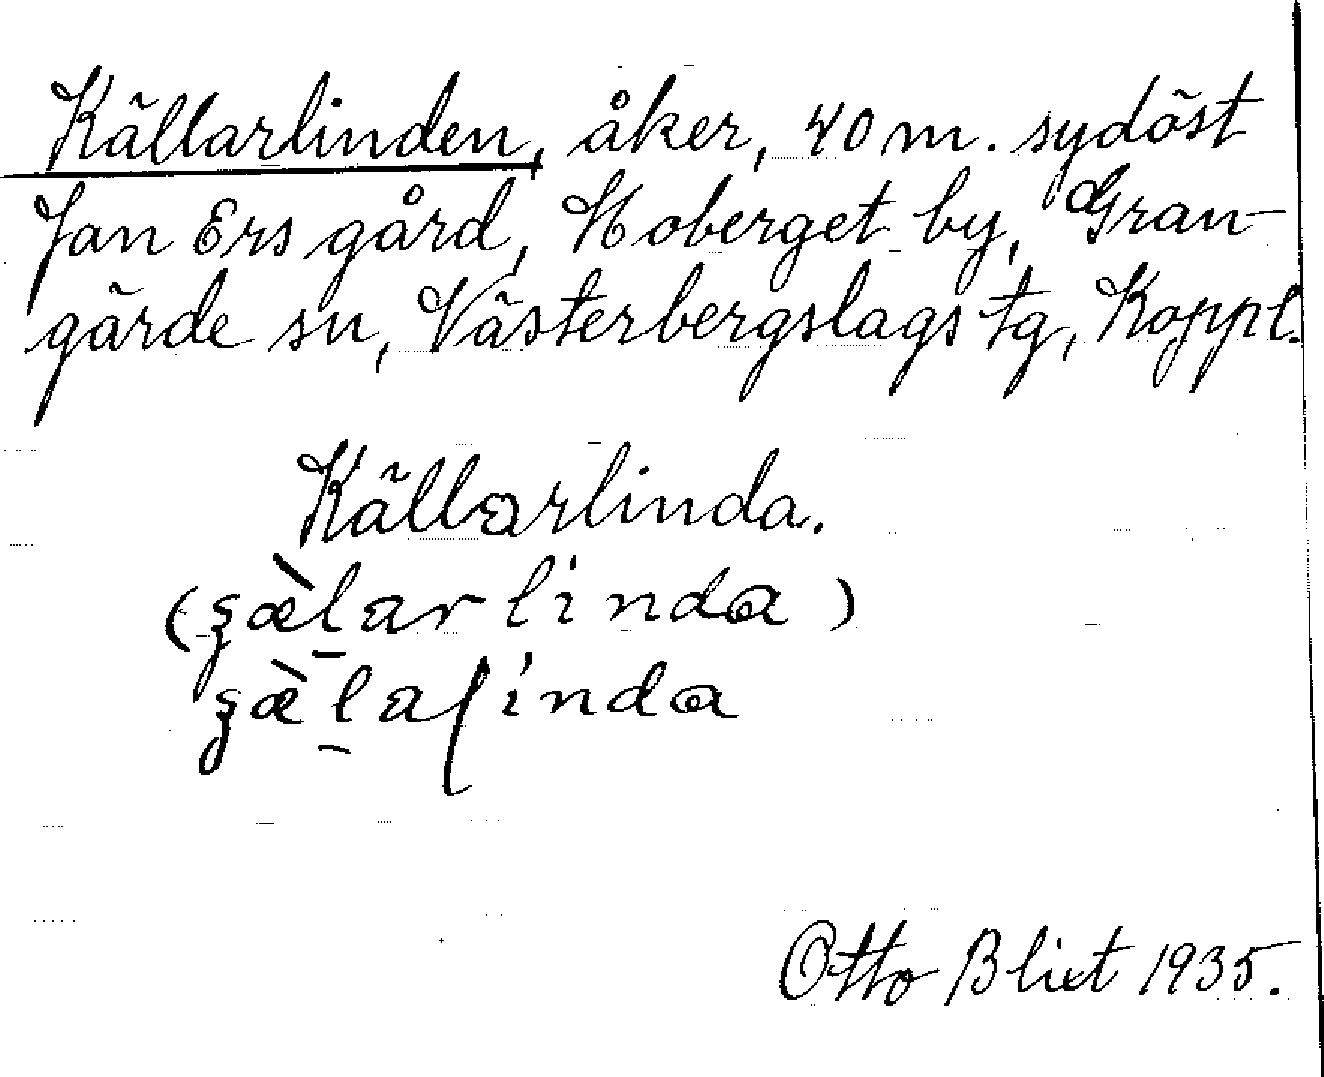 Källarlinden, åker, 40 m. sydöst
Jan Ers gård, Hoberget by, Gran-
gärde sn, Västerbergslags tg, Koppl.
Källarlinda.
Otto Blixt 1935.